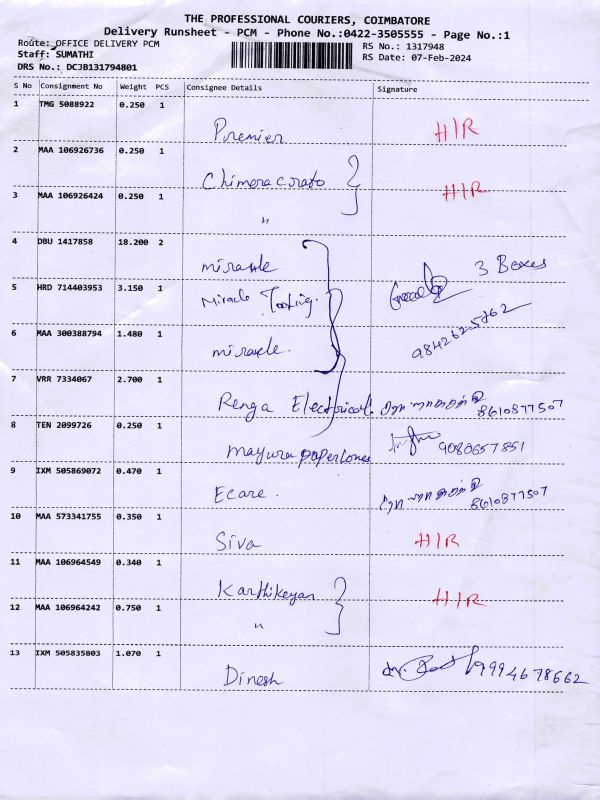 THE PROFESSIONAL COURIERS, COIMBATORE
Delivery Runsheet - PCM - Phone No.:0422-3505555 - Page No.:1
Route: OFFICE DELIVERY PCM
Staff: SUMATHI
DRS No.: DCJB131794801
RS No.: 1317948
RS Date: 07-Feb-2024
S No Consignment No Weight PCS Consignee Details Signature
1 TMG 5088922 0.250 1
Premier H/R
2 MAA 106926736 0.250 1
Chimera H/R
3 MAA 106926424 0.250 1
"
4 DBU 1417858 18.200 2
miracle 3 Boxes
5 HRD 714403953 3.150 1
Miracle Tooling.
6 MAA 300388794 1.480 1
miracle. 9842625762
7 VRR 7334067 2.700 1
Renga Electrical. 8610877507
8 TEN 2099726 0.250 1
mayura 9080657851
9 IXM 505869072 0.470 1
Ecare. 8610877507
10 MAA 573341755 0.350 1
Siva H/R
11 MAA 106964549 0.340 1
Karthikeyan H/R
12 MAA 106964242 0.750 1
"
13 IXM 505835803 1.070 1
Dinesh 9994678662